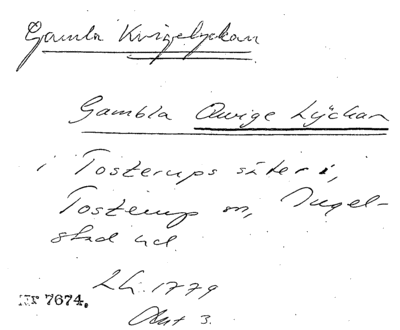 Gamla Kvigelyckan
Gambla Qwige Lÿckan
i Tosterups säteri,
Tosterup sn, Ingel-
stad hd.
LG. 1779
Nr 7674.
Akt 3.